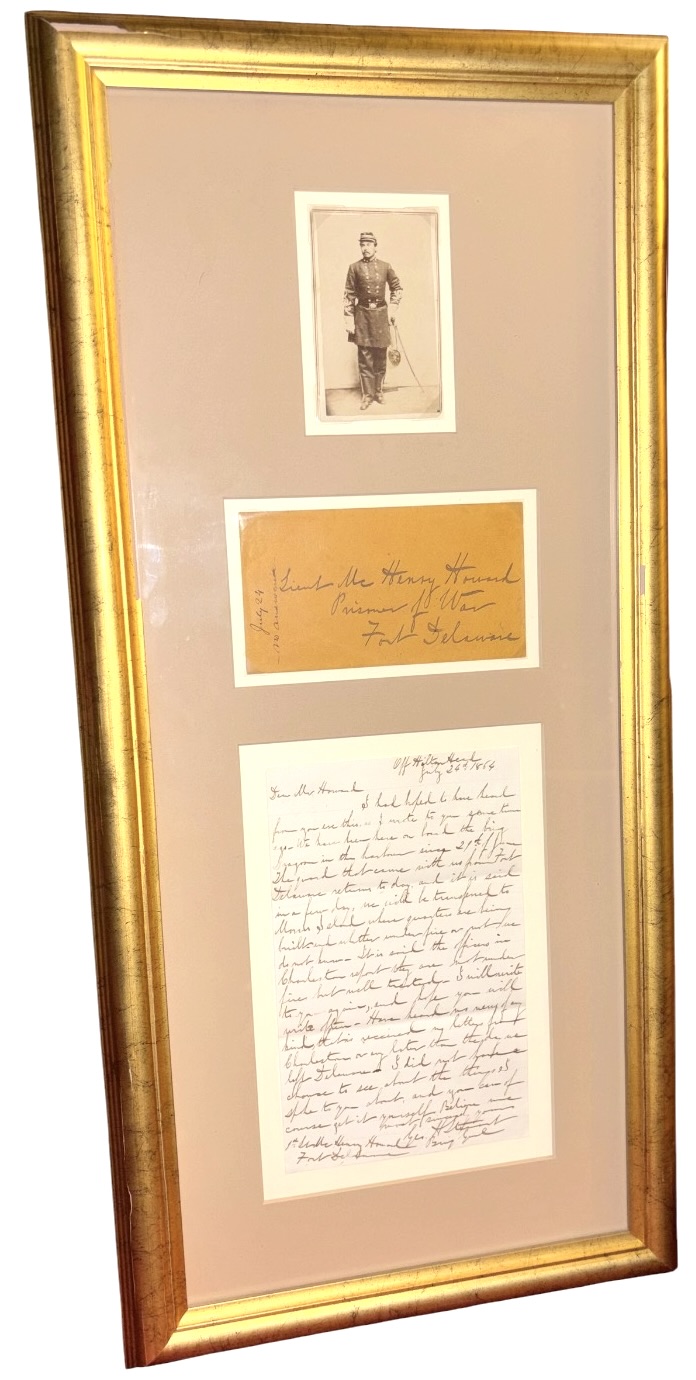 July 24
answered
Lieut Mc Henry Howard
Prisoner of War
Fort Delaware
Off Hilton Head
July 24th 1864
Dear Mr Howard
I had hoped to have heard
from you ere this, as I wrote to you some time
ago. We have been here on board the brig
Dragoon in this harbour since 21st
The guard that came with us from Fort
Delaware returns to day, and it is said
in a few days, we will be transferred to
Morris Island where quarters are being
built and whether under fire or not we
do not know - It is said the officers in
Charleston report they are not under
fire but well treated. I will write
to you again, and hope you will
write often - Have heard no news of any
kind, not having received my letters from
Charleston or any later than the day we
left Delaware - I did not have a
chance to see about the things I
spoke to you about, and you can of
course get it yourself. Believe me
most sincerely yours
1st Lt Mc Henry Howard
Fort Delaware
Brig Genl